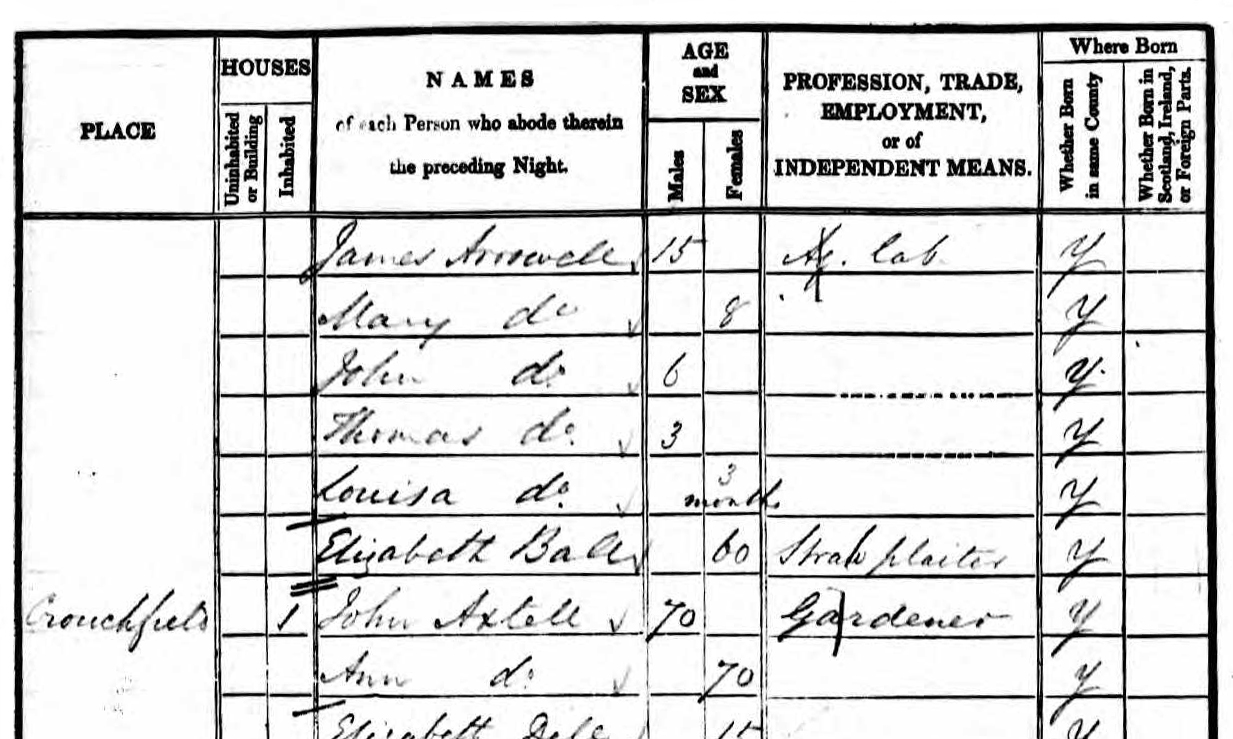 PLACE
HOUSES
Uninhabited or Building
Inhabited
NAMES
of each Person who abode therein
the preceding Night.
AGE
and
SEX
Males
Females
PROFESSION, TRADE,
EMPLOYMENT,
or of
INDEPENDENT MEANS.
Where Born
Whether Born in same County
Whether Born in Scotland, Ireland, or Foreign Parts.
James 15 Ag. Lab Y
Mary do 8 Y
John do. 6 Y
Thomas do. 3 Y
Louisa do. 3 months Y
Elizabeth Ball 60 Straw plaiter Y
Crouchfield 1 John Axtell 70 Gardener Y
Ann do. 70 Y
Elizabeth Dell 15 Y